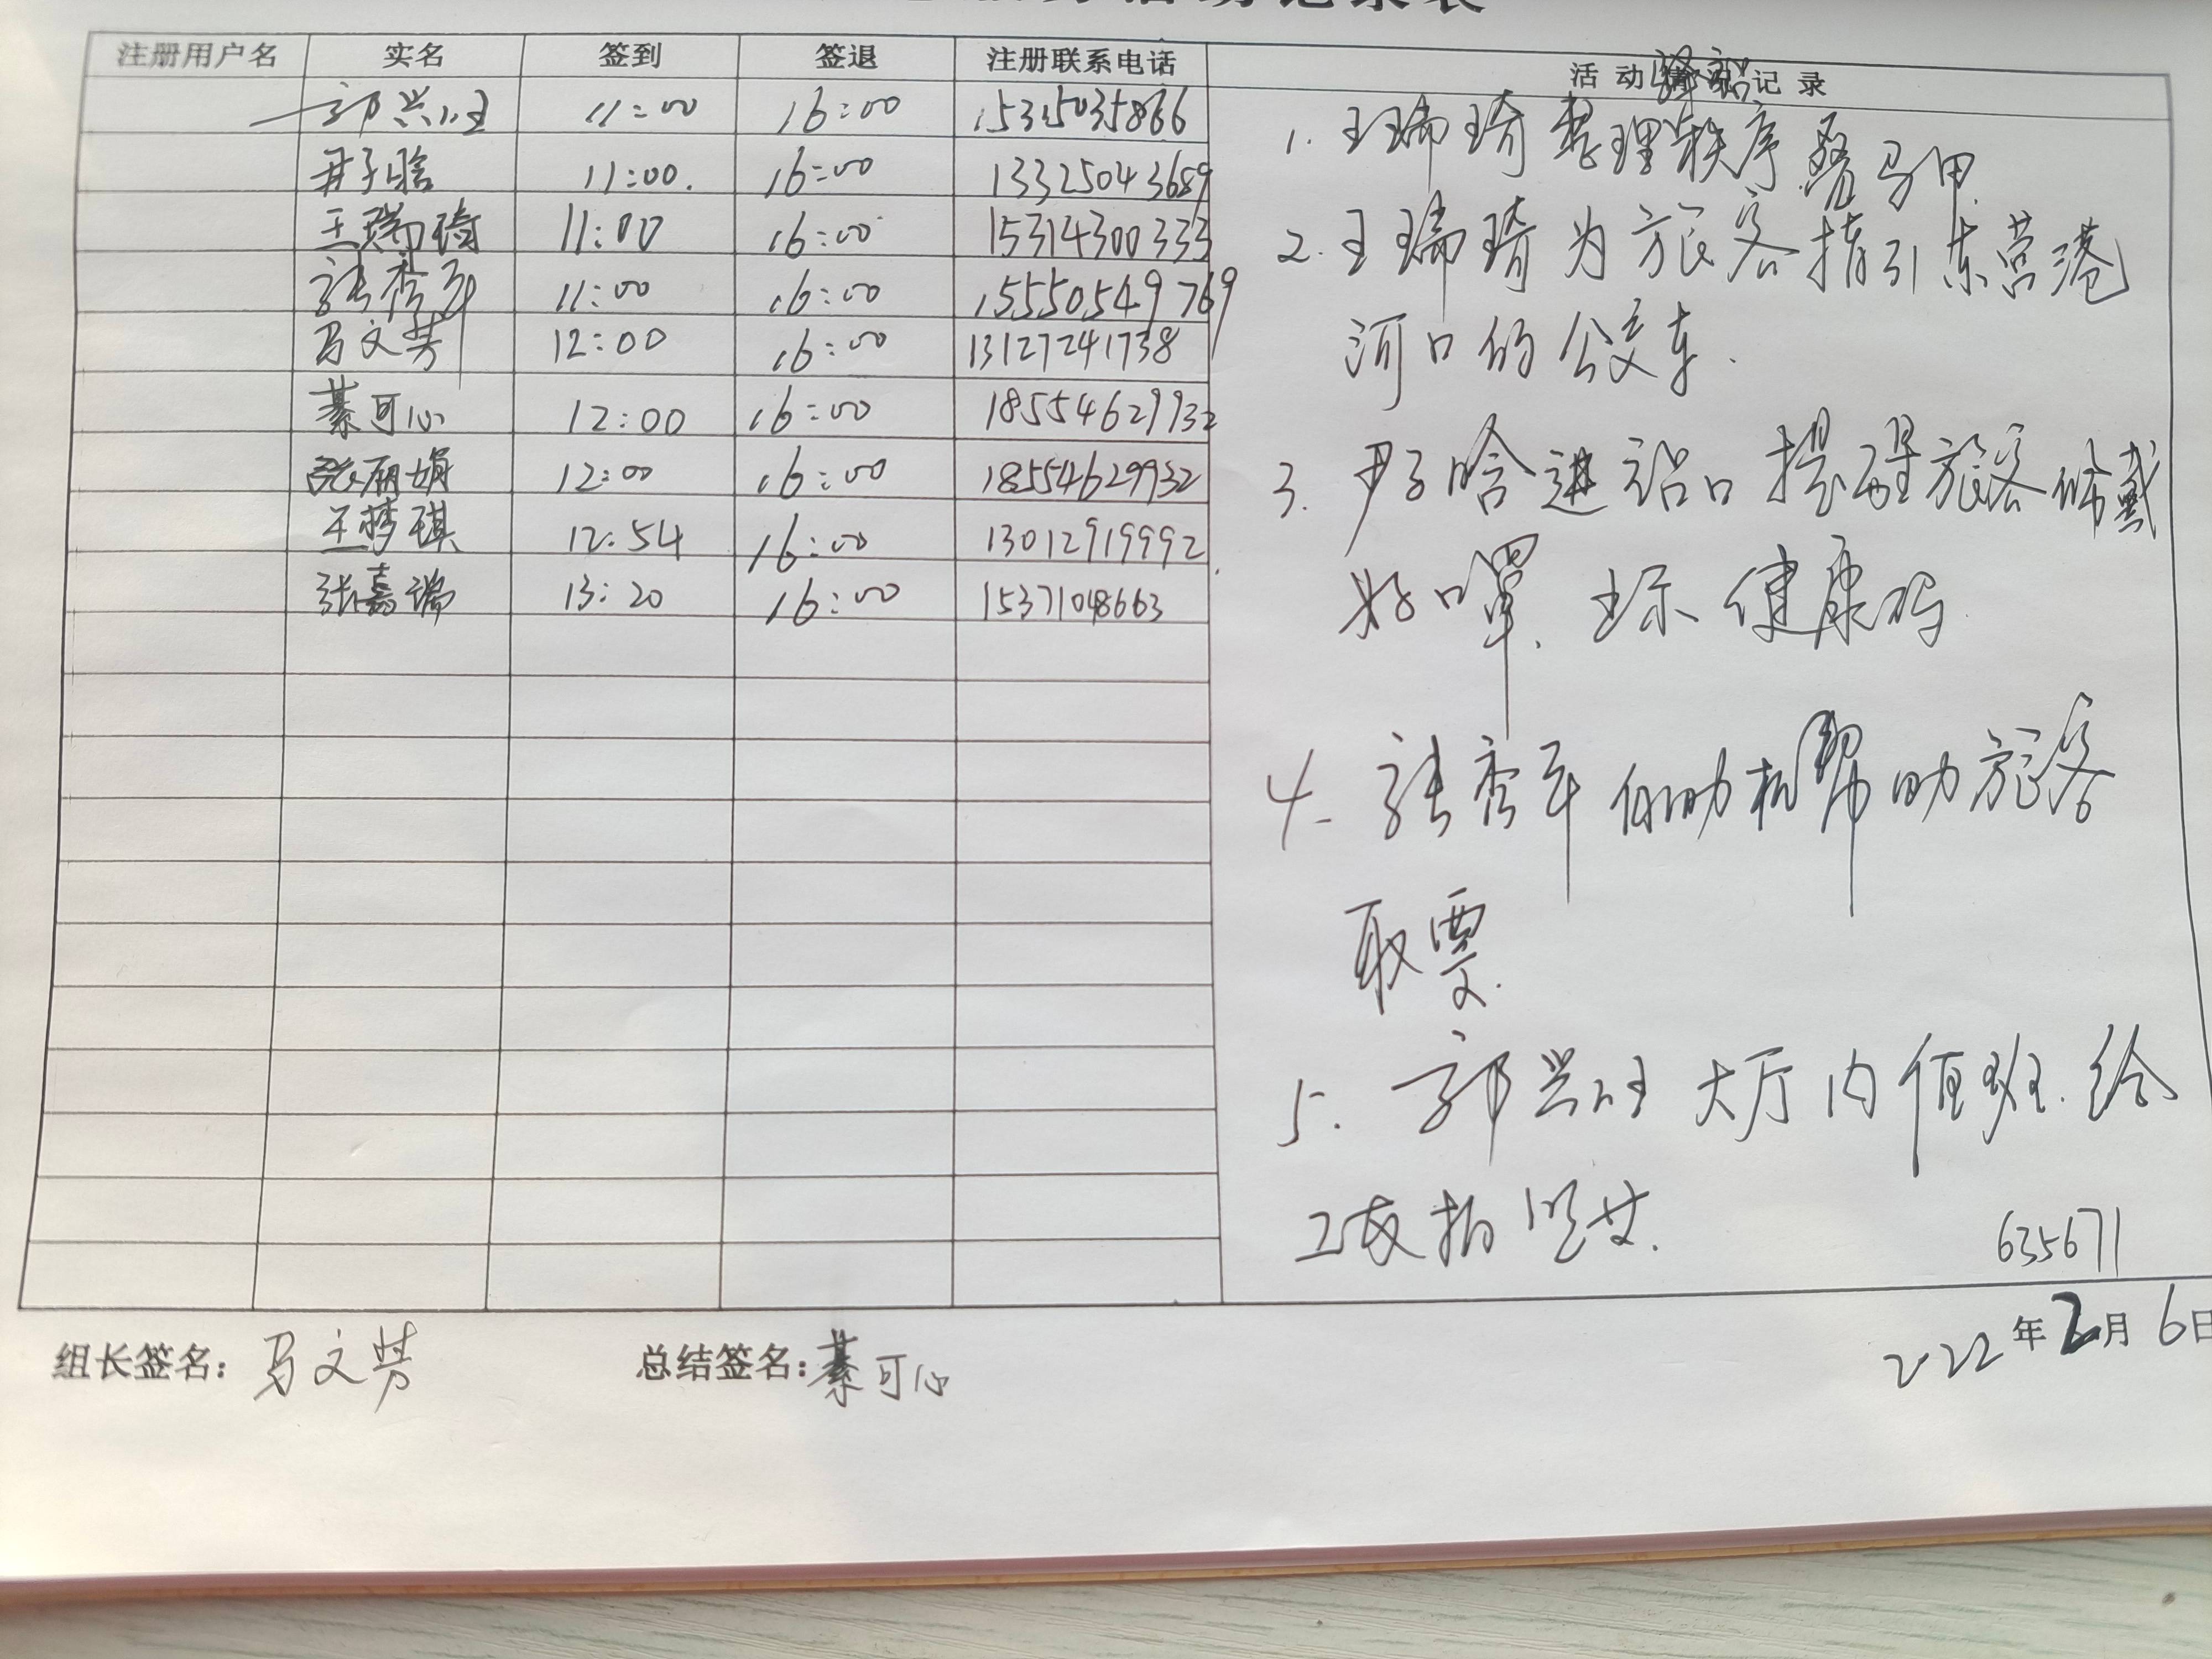 注册用户名 实名 签到 签退 注册联系电话 活动情况记录
郭兴旺 11:00 16:00 15315035866
尹子晗 11:00. 16:00 13325043689
王瑞琦 11:00 16:00 15314300333
张秀平 11:00 16:00 15550549769
马文芳 12:00 16:00 13127241738
綦可心 12:00 16:00 18554629932
张丽娟 12:00 16:00 18554629932
王梦琪 12:54 16:00 13012919992
张嘉瑞 13:20 16:00 15371048663
1. 王瑞琦整理秩序 叠马甲.
2. 王瑞琦为旅客指引东营港
河口的公交车.
3. 尹子晗进站口提醒旅客佩戴
好口罩. 出示健康码
4. 张秀平自助机帮助旅客
取票.
5. 郭兴旺大厅内值班. 给
635671
组长签名: 马文芳 总结签名: 綦可心 2022年2月6日